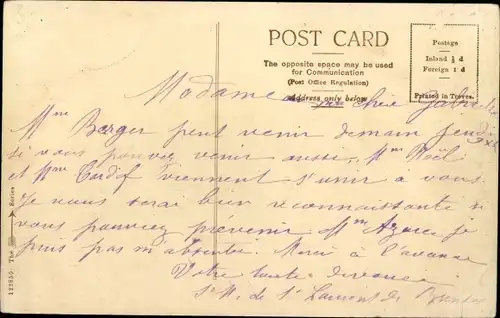 POST CARD
The opposite space may be used
for Communication
(Post Office Regulation)
Address only below
Postage
Inland ½ d
Foreign 1 d
Printed in Treves.
Madame chère
Mme Berger peut venir demain jeudi
si vous pouvez venir aussi, Mme Noël
et Mme viennent s'unir à vous
Je vous serai bien reconnaissante si
vous pouviez prévenir Mme je
puis pas m'absenter. Merci à l'avance
Votre toute dévouée
de St Laurent de
123850 The Series